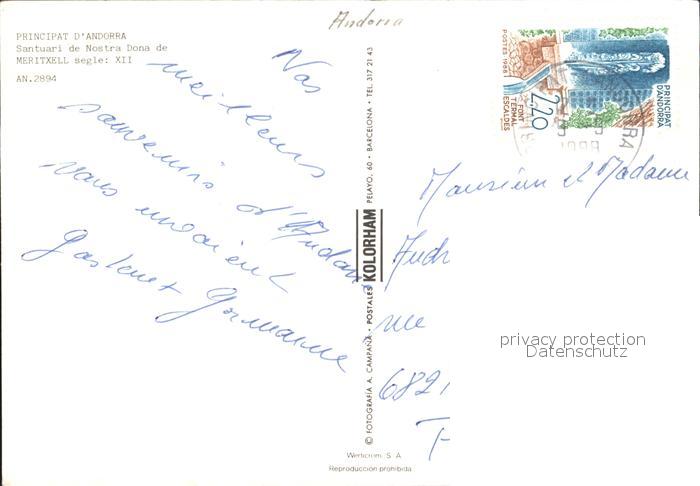 PRINCIPAT D'ANDORRA
Santuari de Nostra Dona de
MERITXELL segle: XII
AN.2894
Andorra
Nos
meilleurs
souvenirs d'Andorre
Vous envoient
Gaston Germaine
© FOTOGRAFÍA A. CAMPAÑÁ - POSTALES KOLORHAM PELAYO, 60 - BARCELONA - TEL. 317 21 43
POSTES 1986
2,20
FONT TERMAL
ESCALDES
PRINCIPAT
D'ANDORRA
Monsieur et Madame
Andr
rue
6821
F
privacy protection
Datenschutz
Werticrom, S. A.
Reproducción prohibida